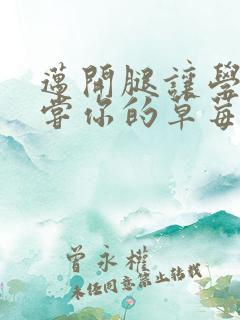 邁開腿讓學
嘗你的草莓
曾永權
未經同意禁止轉載